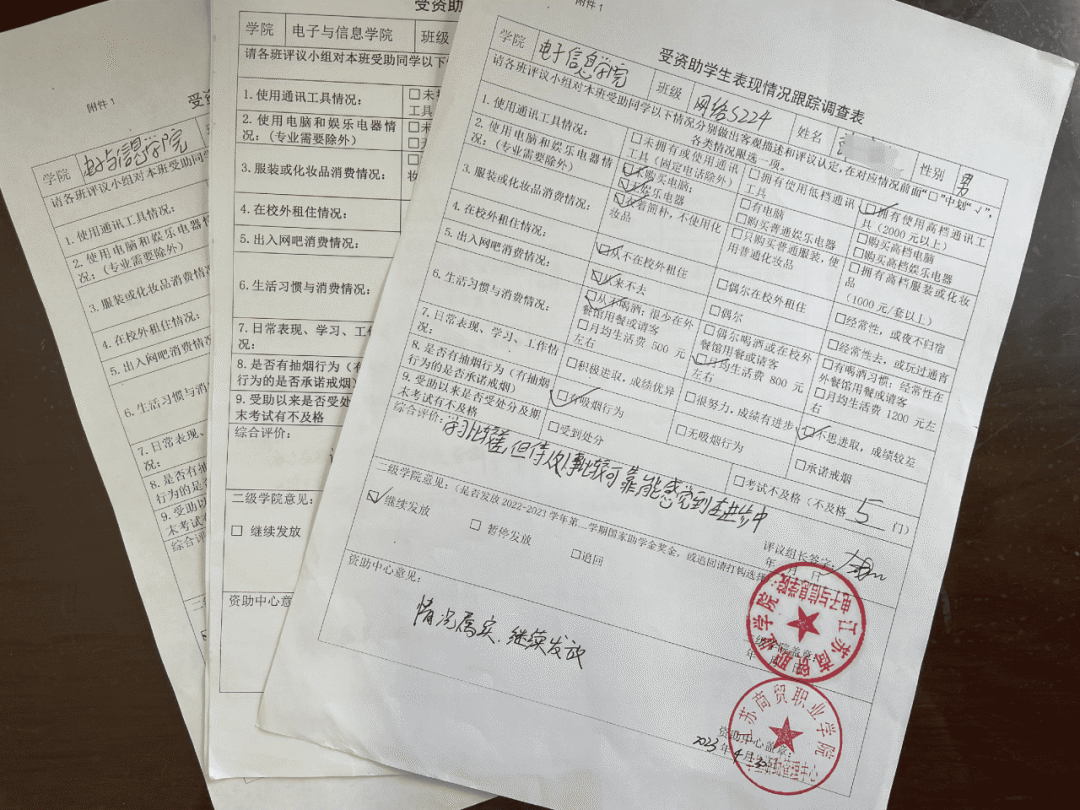 附件 1
受
学院
电子与信息学院
请各班评议小组对本班受助同学
1. 使用通讯工具情况:
2. 使用电脑和娱乐电器情
况:(专业需要除外)
3. 服装或化妆品消费情况:
4. 在校外租住情况:
5. 出入网吧消费情况:
6. 生活习惯与消费情
7. 日常表现、
况:
8. 是否有抽烟
行为的是否
9. 受助以
末考试有
综合评价:
受资助
学院
电子与信息学院
班级
请各班评议小组对本班受助同学以下
1. 使用通讯工具情况:
工具
2. 使用电脑和娱乐电器情
况:(专业需要除外)
3. 服装或化妆品消费情况:
4. 在校外租住情况:
5. 出入网吧消费情况:
6. 生活习惯与消费情况:
7. 日常表现、学习、工作
况:
8. 是否有抽烟行为(有
行为的是否承诺戒烟)
9. 受助以来是否受处
末考试有不及格
综合评价:
二级学院意见:
□ 继续发放
资助中心意
附件 1
受资助学生表现情况跟踪调查表
学院
电子信息学院
班级
网络S224
姓名
性别
男
请各班评议小组对本班受助同学以下情况分别做出客观描述和评议认定,在对应情况前面“□”中划“√”,
各类情况限选一项。
1. 使用通讯工具情况:
□未拥有或使用通讯
工具(固定电话除外)
□拥有使用低档通讯
工具
☑拥有使用高档通讯工
具(2000 元以上)
2. 使用电脑和娱乐电器情
况:(专业需要除外)
☑未购买电脑;
☑无娱乐电器
□有电脑
□购买普通娱乐电器
□购买高档电脑
□购买高档娱乐电器
3. 服装或化妆品消费情况:
☑衣着简朴,不使用化
妆品
□只购买普通服装,使
用普通化妆品
□拥有高档服装或化妆
品
(1000 元/套以上)
4. 在校外租住情况:
☑从不在校外租住
□偶尔在校外租住
□经常性,或夜不归宿
5. 出入网吧消费情况:
☑从来不去
□偶尔
□经常性去,或玩过通宵
6. 生活习惯与消费情况:
☑从不喝酒;很少在外
餐馆用餐或请客
□月均生活费 500 元
左右
□偶尔喝酒或在校外
餐馆用餐或请客
☑月均生活费 800 元
左右
□有喝酒习惯;经常性在
外餐馆用餐或请客
□月均生活费 1200 元左
右
7. 日常表现、学习、工作情
况:
□积极进取,成绩优异
□很努力,成绩有进步
☑不思进取,成绩较差
8. 是否有抽烟行为(有抽烟
行为的是否承诺戒烟)
☑有吸烟行为
□无吸烟行为
□承诺戒烟
9. 受助以来是否受处分及期
末考试有不及格
□受到处分
□考试不及格(不及格 5 门)
综合评价:
学习比较差,但待人处事比较可靠,能感觉到在进步中
评议组长签字:
年 月 日
二级学院意见:(是否发放 2022-2023 学年第二学期国家助学金奖金,或追回请打钩选择):
☑继续发放
□ 暂停发放
□追回
江苏商贸职业学院
电子与信息学院
二级学院盖章:
年 月 日
资助中心意见:
情况属实、继续发放
江苏商贸职业学院
学生资助管理中心
资助中心盖章:
2023 年 4 月 30